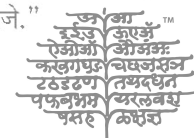 जे.”
अ आ ™
इ ई उ ऊ ए ॲ
ऐ ओ ऑ औ अं अः
क ख ग घ ङ च छ ज झ ञ
ट ठ ड ढ ण त थ द ध न
प फ ब भ म य र ल व श
ष स ह ळ क्ष ज्ञ